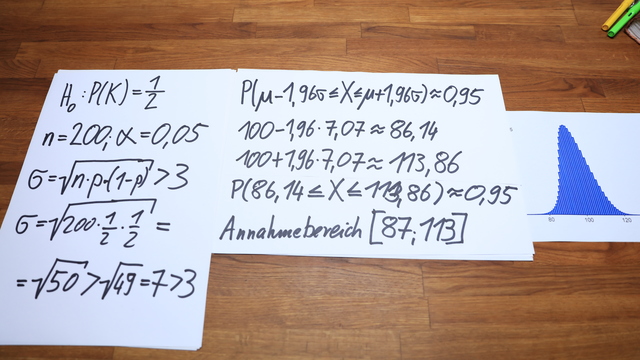 H₀: P(K) = 1/2
n = 200; α = 0,05
σ = √n·p·(1-p) > 3
σ = √200·1/2·1/2 =
= √50 > √49 = 7 > 3
P(μ-1,96σ ≤ X ≤ μ+1,96σ) ≈ 0,95
100-1,96·7,07 ≈ 86,14
100+1,96·7,07 ≈ 113,86
P(86,14 ≤ X ≤ 113,86) ≈ 0,95
Annahmebereich [87;113]
80 100 120